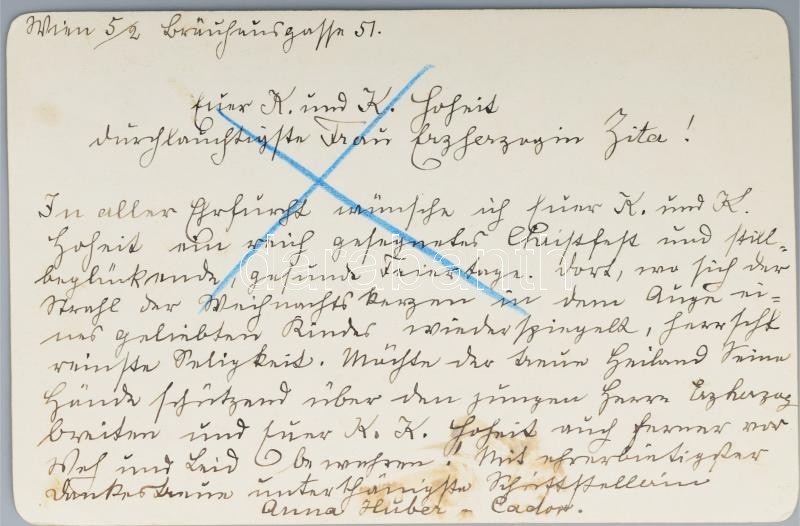 Wien 5/2 Bräuhausgasse 51.
Euer K. und K. Hoheit
durchlauchtigste Frau Erzherzogin Zita!
In aller Ehrfurcht wünsche ich Euer K. und K.
Hoheit ein reich gesegnetes Christfest und still-
beglückende, gesunde Feiertage. Dort, wo sich der
Strahl der Weihnachtskerzen in dem Auge ei-
nes geliebten Kindes wiederspiegelt, herrscht
reinste Seligkeit. Möchte der treue Heiland Seine
Hände schützend über den jungen Herrn Erzherzog
breiten und Euer K. K. Hoheit auch ferner vor
Weh und Leid bewahren! Mit ehrerbietigster
Dankestreue unterthänigste Schriftstellerin
Anna Huber - Cador.
darabanth